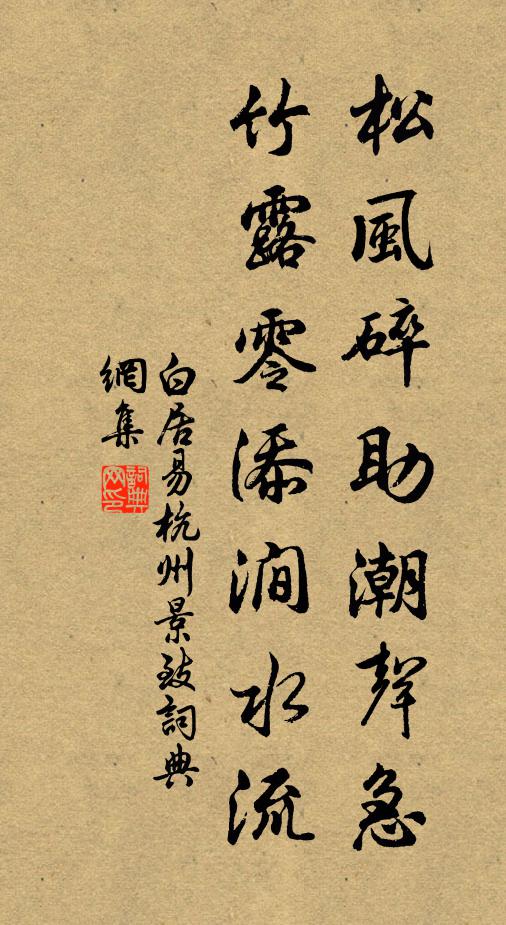 松風碎助潮聲急
竹露零添澗水流
白居易杭州景致詞典
網集
詞典
网印